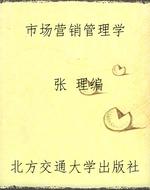 市场营销管理学
张 理编
北方交通大学出版社